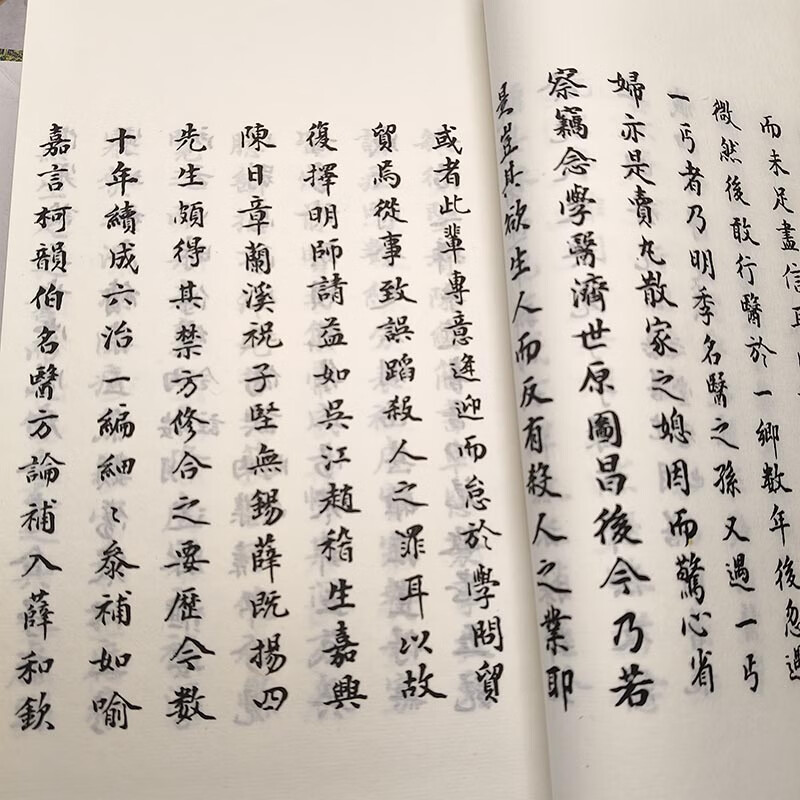 而未足盡信
微然後敢行醫於一鄉数年後忽遇
一丐者乃明季名醫之孫又遇一丐
婦亦是賣丸散家之媳因而驚心省
察竊念學醫濟世原圖昌後今乃若
是豈其欲生人而反有殺人之業耶
或者此輩專意逢迎而怠於學問貿
貿焉從事致誤蹈殺人之罪耳以故
復擇明師請益如吳江趙稽生嘉興
陳日章蘭溪祝子堅無錫薛既揚四
先生頗得其禁方修合之要歷今數
十年續成六治一編細〻參補如喻
嘉言柯韻伯名醫方論補入薛和欽